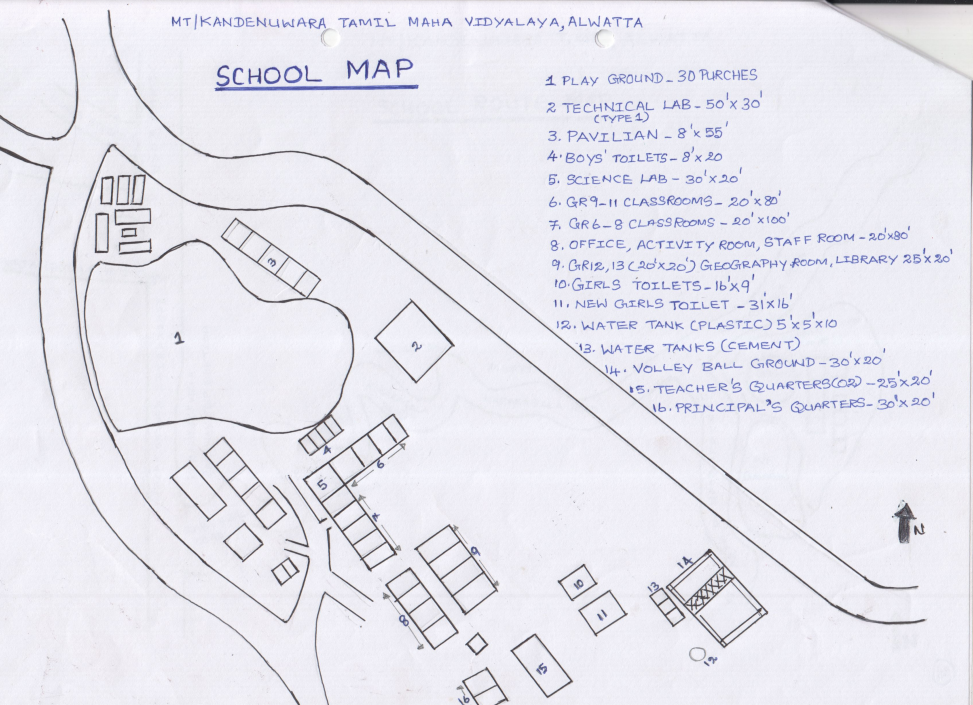 MT/KANDENUWARA TAMIL MAHA VIDYALAYA, ALWATTA
SCHOOL MAP
1 PLAY GROUND - 30 PURCHES
2 TECHNICAL LAB - 50'x 30'
(TYPE 1)
3. PAVILIAN - 8'x 55'
4. BOYS' TOILETS - 8'x 20
5. SCIENCE LAB - 30'x 20'
6. GR 9-11 CLASSROOMS - 20'x 80'
7. GR 6-8 CLASSROOMS - 20'x 100'
8. OFFICE, ACTIVITY ROOM, STAFF ROOM - 20'x80'
9. GR12, 13 (20'x 20') GEOGRAPHY ROOM, LIBRARY 25'x 20'
10. GIRLS TOILETS - 16'x 9'
11. NEW GIRLS TOILET - 31'x 16'
12. WATER TANK (PLASTIC) 5'x 5'x 10
13. WATER TANKS (CEMENT)
14. VOLLEY BALL GROUND - 30'x 20'
15. TEACHER'S QUARTERS(02) - 25'x 20'
16. PRINCIPAL'S QUARTERS - 30'x 20'
3
1
2
4
6
5
7
N
9
14
10
13
8
11
12
15
16